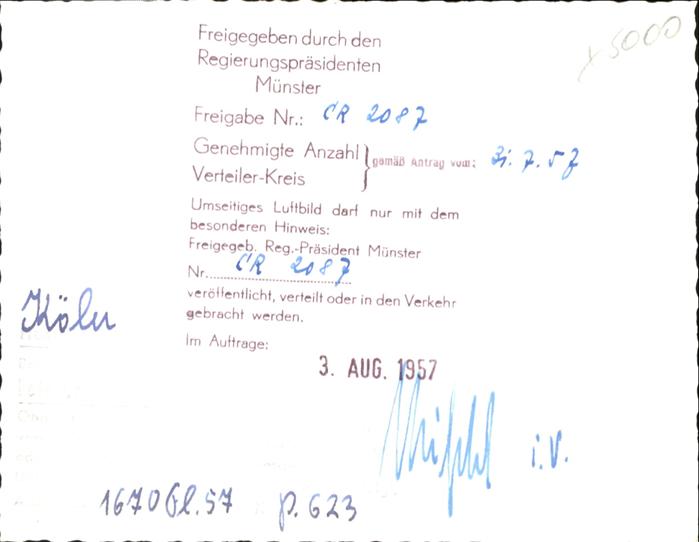 x 5000
Freigegeben durch den
Regierungspräsidenten
Münster
Freigabe Nr.: CR 2087
Genehmigte Anzahl } gemäß Antrag vom: 31. 7. 57
Verteiler-Kreis
Umseitiges Luftbild darf nur mit dem
besonderen Hinweis:
Freigegeb. Reg.-Präsident Münster
Nr. CR 2087
veröffentlicht, verteilt oder in den Verkehr
gebracht werden.
Köln
Im Auftrage:
3. AUG. 1957
i.V.
1670 57 p. 623